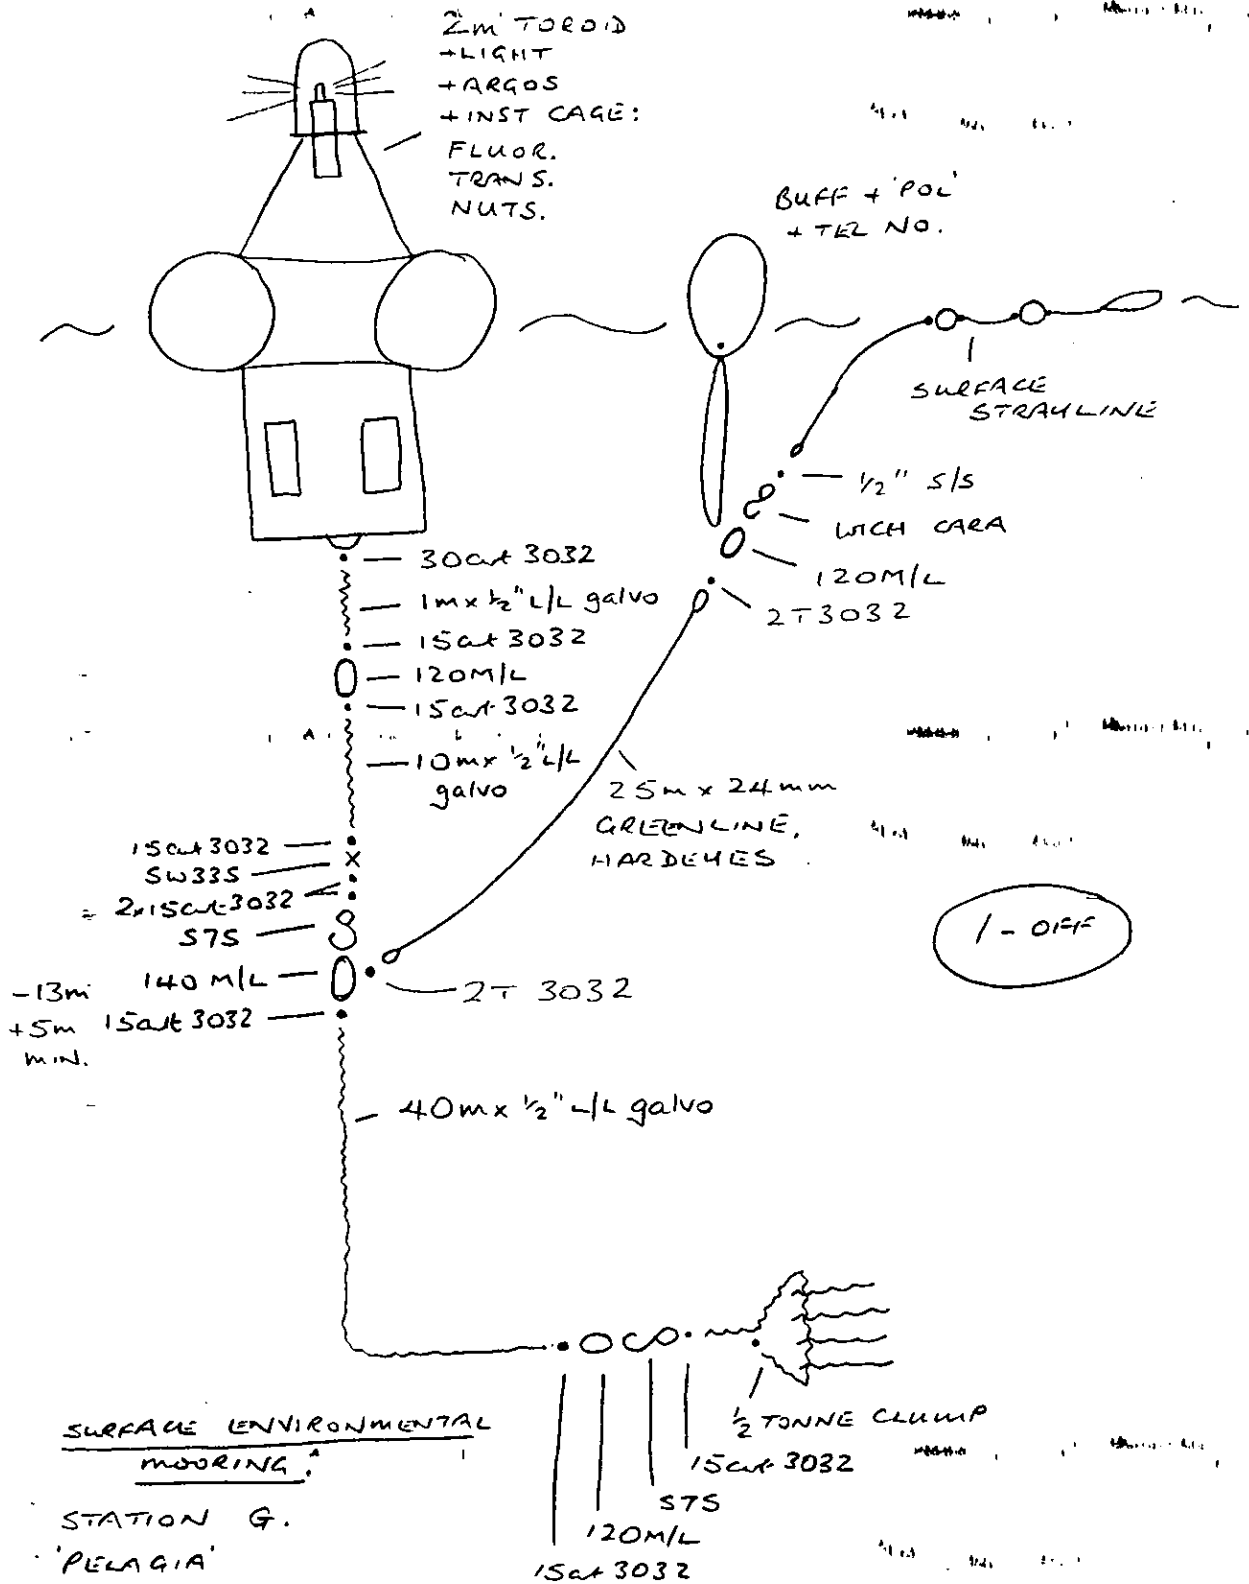 2m TOROID
+LIGHT
+ARGOS
+INST CAGE:
FLUOR.
TRANS.
NUTS.
BUFF + 'POL'
+ TEL NO.
SURFACE
STRAYLINE
1/2" S/S
WICH CARA
120M/L
2T3032
30cwt 3032
1m x 1/2" L/L galvo
15cwt 3032
120M/L
15cwt 3032
10m x 1/2" L/L
galvo
25m x 24mm
GREENLINE,
HARDEYES
15cwt 3032
SW33S
2x15cwt 3032
S7S
140 M/L
2T 3032
-13m
+5m
MIN.
15cwt 3032
1-OFF
40m x 1/2" L/L galvo
1/2 TONNE CLUMP
15cwt 3032
S7S
120M/L
15cwt 3032
SURFACE ENVIRONMENTAL
MOORING.
STATION G.
'PELAGIA'